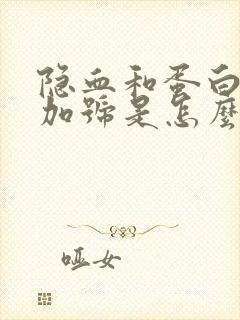 隐血和蛋白
加號是怎麼
哑女